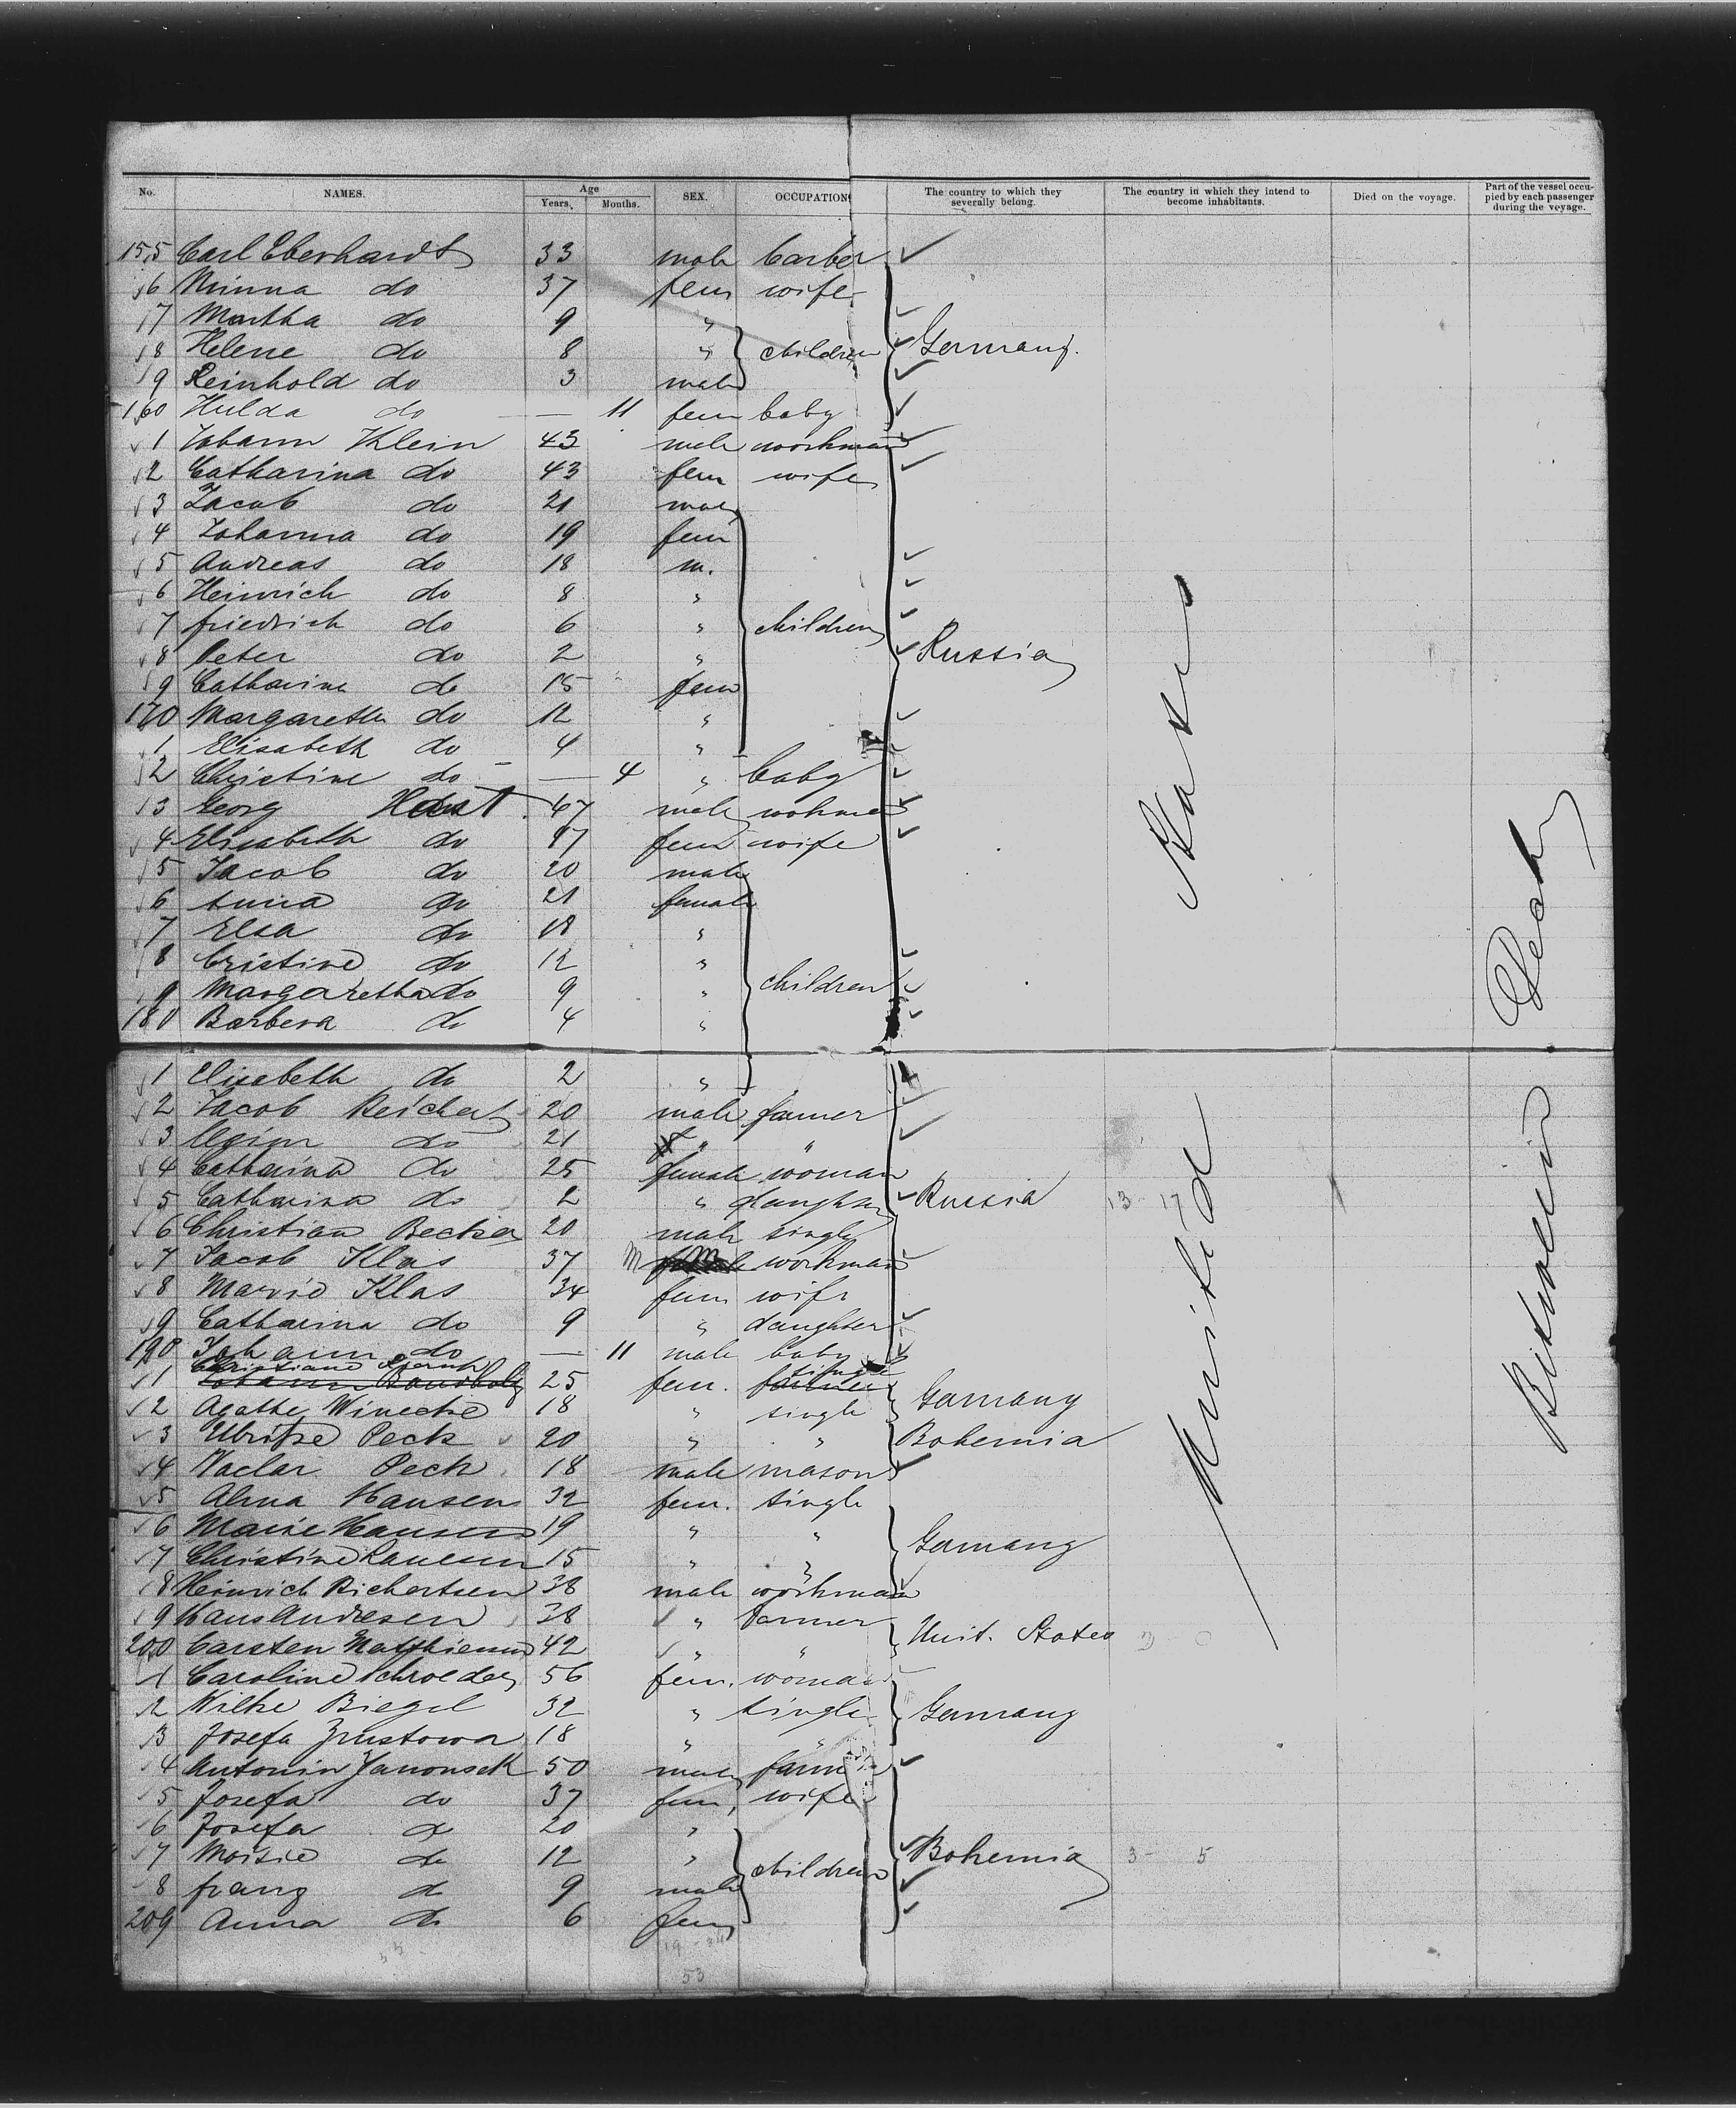 No. NAMES. Age Years. Months. SEX. OCCUPATION The country to which they severally belong. The country in which they intend to become inhabitants. Died on the voyage. Part of the vessel occupied by each passenger during the voyage.
155 Carl Eberhardt 33 male barber
6 Minna do 37 fem wife
7 Martha do 9 "
8 Helene do 8 " children Germany.
9 Reinhold do 3 male
160 Hulda do — 11 fem baby
1 Johann Klein 43 male workman
2 Catharina do 43 fem wife
3 Jacob do 21 male
4 Johanna do 19 fem
5 Andreas do 18 m.
6 Heinrich do 8 "
7 friedrich do 6 " children
8 Peter do 2 " Russia
9 Catharina do 15 fem
170 Margaretha do 12 "
1 Elisabeth do 4 "
2 Christine do — 4 " baby
3 Georg 47 male
4 Elisabeth do 47 fem wife
5 Jacob do 20 male
6 Anna do 21 female
7 Elsa do 18 "
8 Cristine do 12 "
9 Margaretha do 9 " children
180 Barbera do 4 "
1 Elisabeth do 2 "
2 Jacob Reichert 20 male farmer
3 do 21 " "
4 Catharina do 25 female woman
5 Catharina do 2 " daughter Russia 13 - 17
6 Christian Becker 20 male single
7 Jacob Klas 37 M workman
8 Marie Klas 34 fem wife
9 Catharina do 9 " daughter
190 Johann do — 11 male baby
Christiane single
1 Johann 25 fem. farmer
2 Agathe Winecke 18 " single Germany
3 Peck 20 " " Bohemia
4 Vaclav Peck 18 male mason
5 Alma Hansen 32 fem. single
6 Marie Hansen 19 " "
7 Christine 15 " " Germany
8 Heinrich Richertsen 38 male workman
9 Hans Andresen 28 " farmer
200 Carsten Matthiesen 42 " " Unit. States
1 Caroline Schroeder 56 fem. woman
2 Wilke Biegel 32 " single Germany
3 Josefa Zrustowa 18 " "
4 Antonin Janousek 50 male farmer
5 Josefa do 37 fem, wife
6 Josefa do 20 "
7 do 12 " children Bohemia 3 - 5
8 franz do 9 male
209 Anna do 6 fem
53
United States